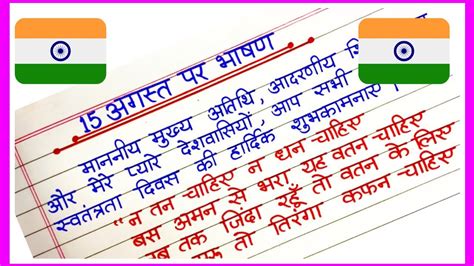 15 अगस्त पर भाषण
माननीय मुख्य अतिथि, आदरणीय
और मेरे प्यारे देशवासियों, आप सभी
स्वतंत्रता दिवस की हार्दिक शुभकामनाएं।
"न तन चाहिए न धन चाहिए
बस अमन से भरा यह वतन चाहिए
जब तक ज़िंदा रहूँ तो वतन के लिए
तो तिरंगा कफन चाहिए